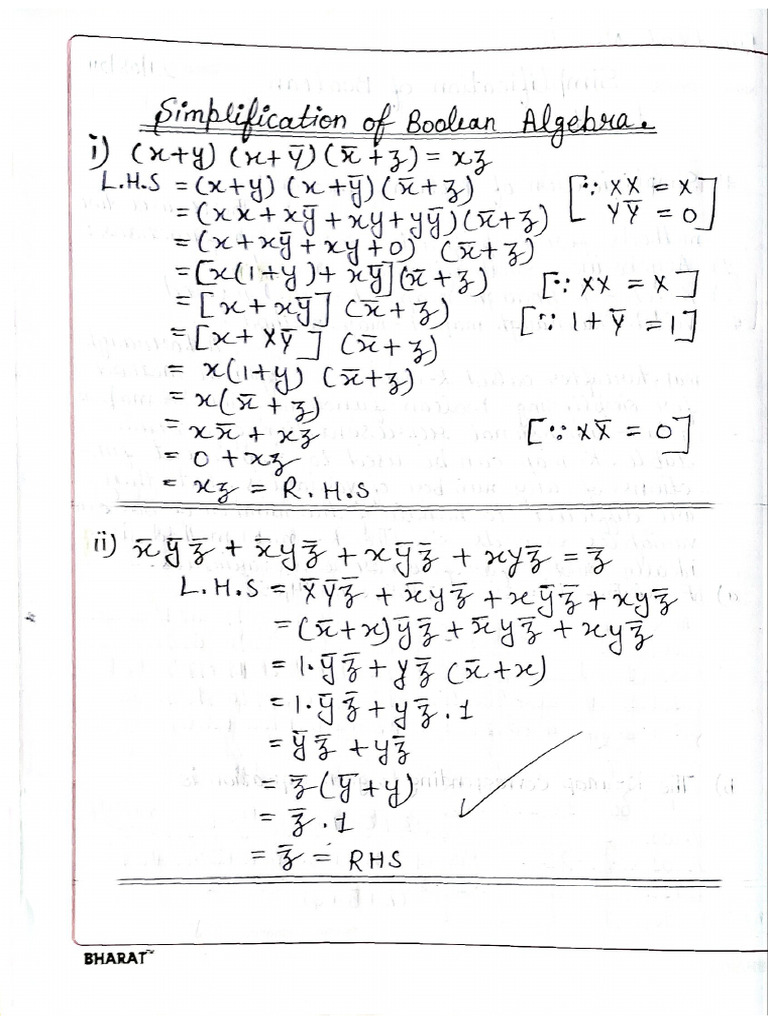 Simplification of Boolean Algebra.
i) (x+y) (x+ȳ) (x̄+z) = xz
L.H.S = (x+y) (x+ȳ) (x̄+z) [∵ XX = X
= (xx + xȳ + xy + yȳ) (x̄+z) YȲ = 0]
= (x + xȳ + xy + 0) (x̄+z)
= [x(1+y) + xȳ] (x̄+z) [∵ XX = X]
= [x + xȳ] (x̄+z) [∵ 1+Ȳ = 1]
= [x + XȲ] (x̄+z)
= x(1+y) (x̄+z)
= x(x̄+z)
= xx̄ + xz [∵ XX̄ = 0]
= 0 + xz
= xz = R.H.S
ii) x̄ȳz̄ + x̄yz̄ + xȳz̄ + xyz̄ = z̄
L.H.S = X̄Ȳz̄ + x̄yz̄ + xȳz̄ + xyz̄
= (x̄+x)ȳz̄ + x̄yz̄ + xyz̄
= 1·ȳz̄ + yz̄ (x̄+x)
= 1·ȳz̄ + yz̄ . 1
= ȳz̄ + yz̄
= z̄ (ȳ+y)
= z̄ . 1
= z̄ = RHS
BHARAT